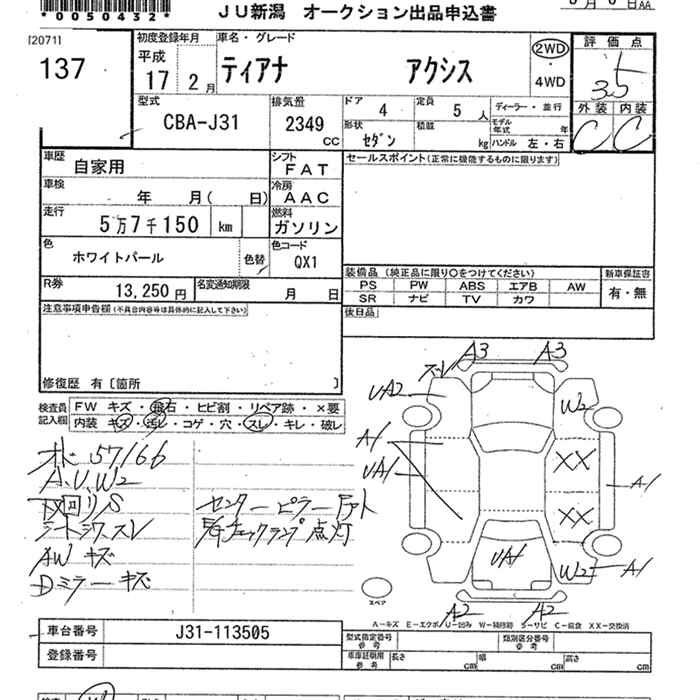 *0050432*
JU新潟 オークション出品申込書
I20711
137
初度登録年月
平成
17 2月
車名・グレード
ティアナ アクシス
2WD
4WD
評価点
3.5
外装 内装
C C
型式
CBA-J31
排気量
2349
CC
ドア 4
定員 5 人
ディーラー・並行
形状 セダン
積載 kg
モデル年式 年
ハンドル 左・右
車歴
自家用
シフト
FAT
セールスポイント(正常に機能するものに限ります)
車検 年 月( 日)
冷房
AAC
走行
5万7千150 km
燃料
ガソリン
色
ホワイトパール
色替
色コード
QX1
装備品 (純正品に限り〇をつけてください)
新車保証書
PS PW ABS エアB AW
SR ナビ TV カワ
有・無
R券
13,250円
名変通知期限
月 日
後日品
注意事項申告欄(不具合内容等は具体的に記入して下さい)
修復歴 有〔箇所 〕
検査員
記入欄
FW キズ・飛石・ヒビ割・リペア跡・×要
内装 キズ・汚レ・コゲ・穴・スレ・キレ・破レ
57166
A.U.W2
シートシワ、スレ
AW キズ
Dミラーキズ
センターピラー
チェックランプ点灯
A3 A3
UA2
W2
A1
UA1
XX
A1
XX
UA1
W2
A1
A2 A2
スペア
A-キズ E-エクボ/U-凹み W-補修跡 S-サビ C-腐食 XX-交換済
車台番号
J31-113505
登録番号
型式指定番号
参考
類別区分番号
参考
車庫証明用
参考
長さ cm
幅 cm
高さ cm